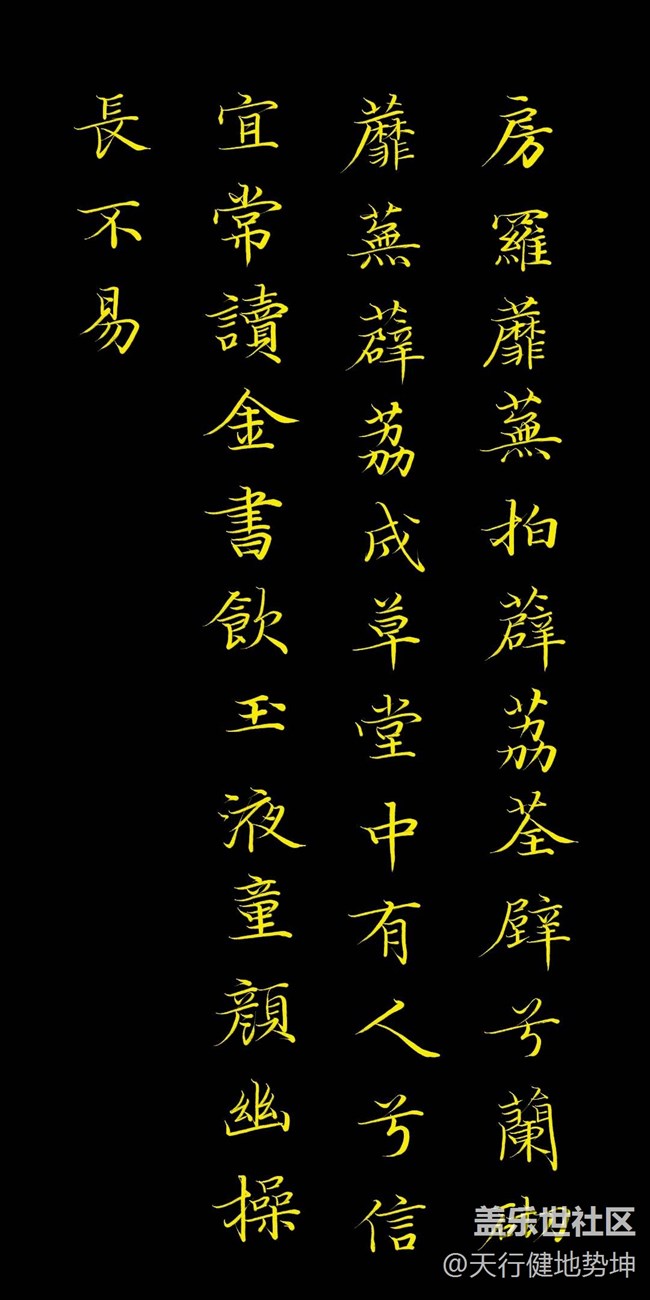 房羅蘼蕪拍薜荔荃辟兮蘭砌
蘼蕪薜荔成草堂中有人兮信
宜常讀金書飲玉液童顏幽操
長不易
盖乐世社区
@天行健地势坤